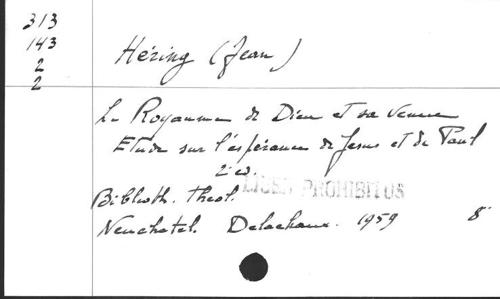 313
143
2
2
Héring (Jean)
Le Royaume de Dieu et sa venue
Etude sur l'espérance de Jesus et de Paul
2 ed.
LIBER PROHIBITUS
Biblioth. Theol.
Neuchatel. Delachaux. 1959 8°